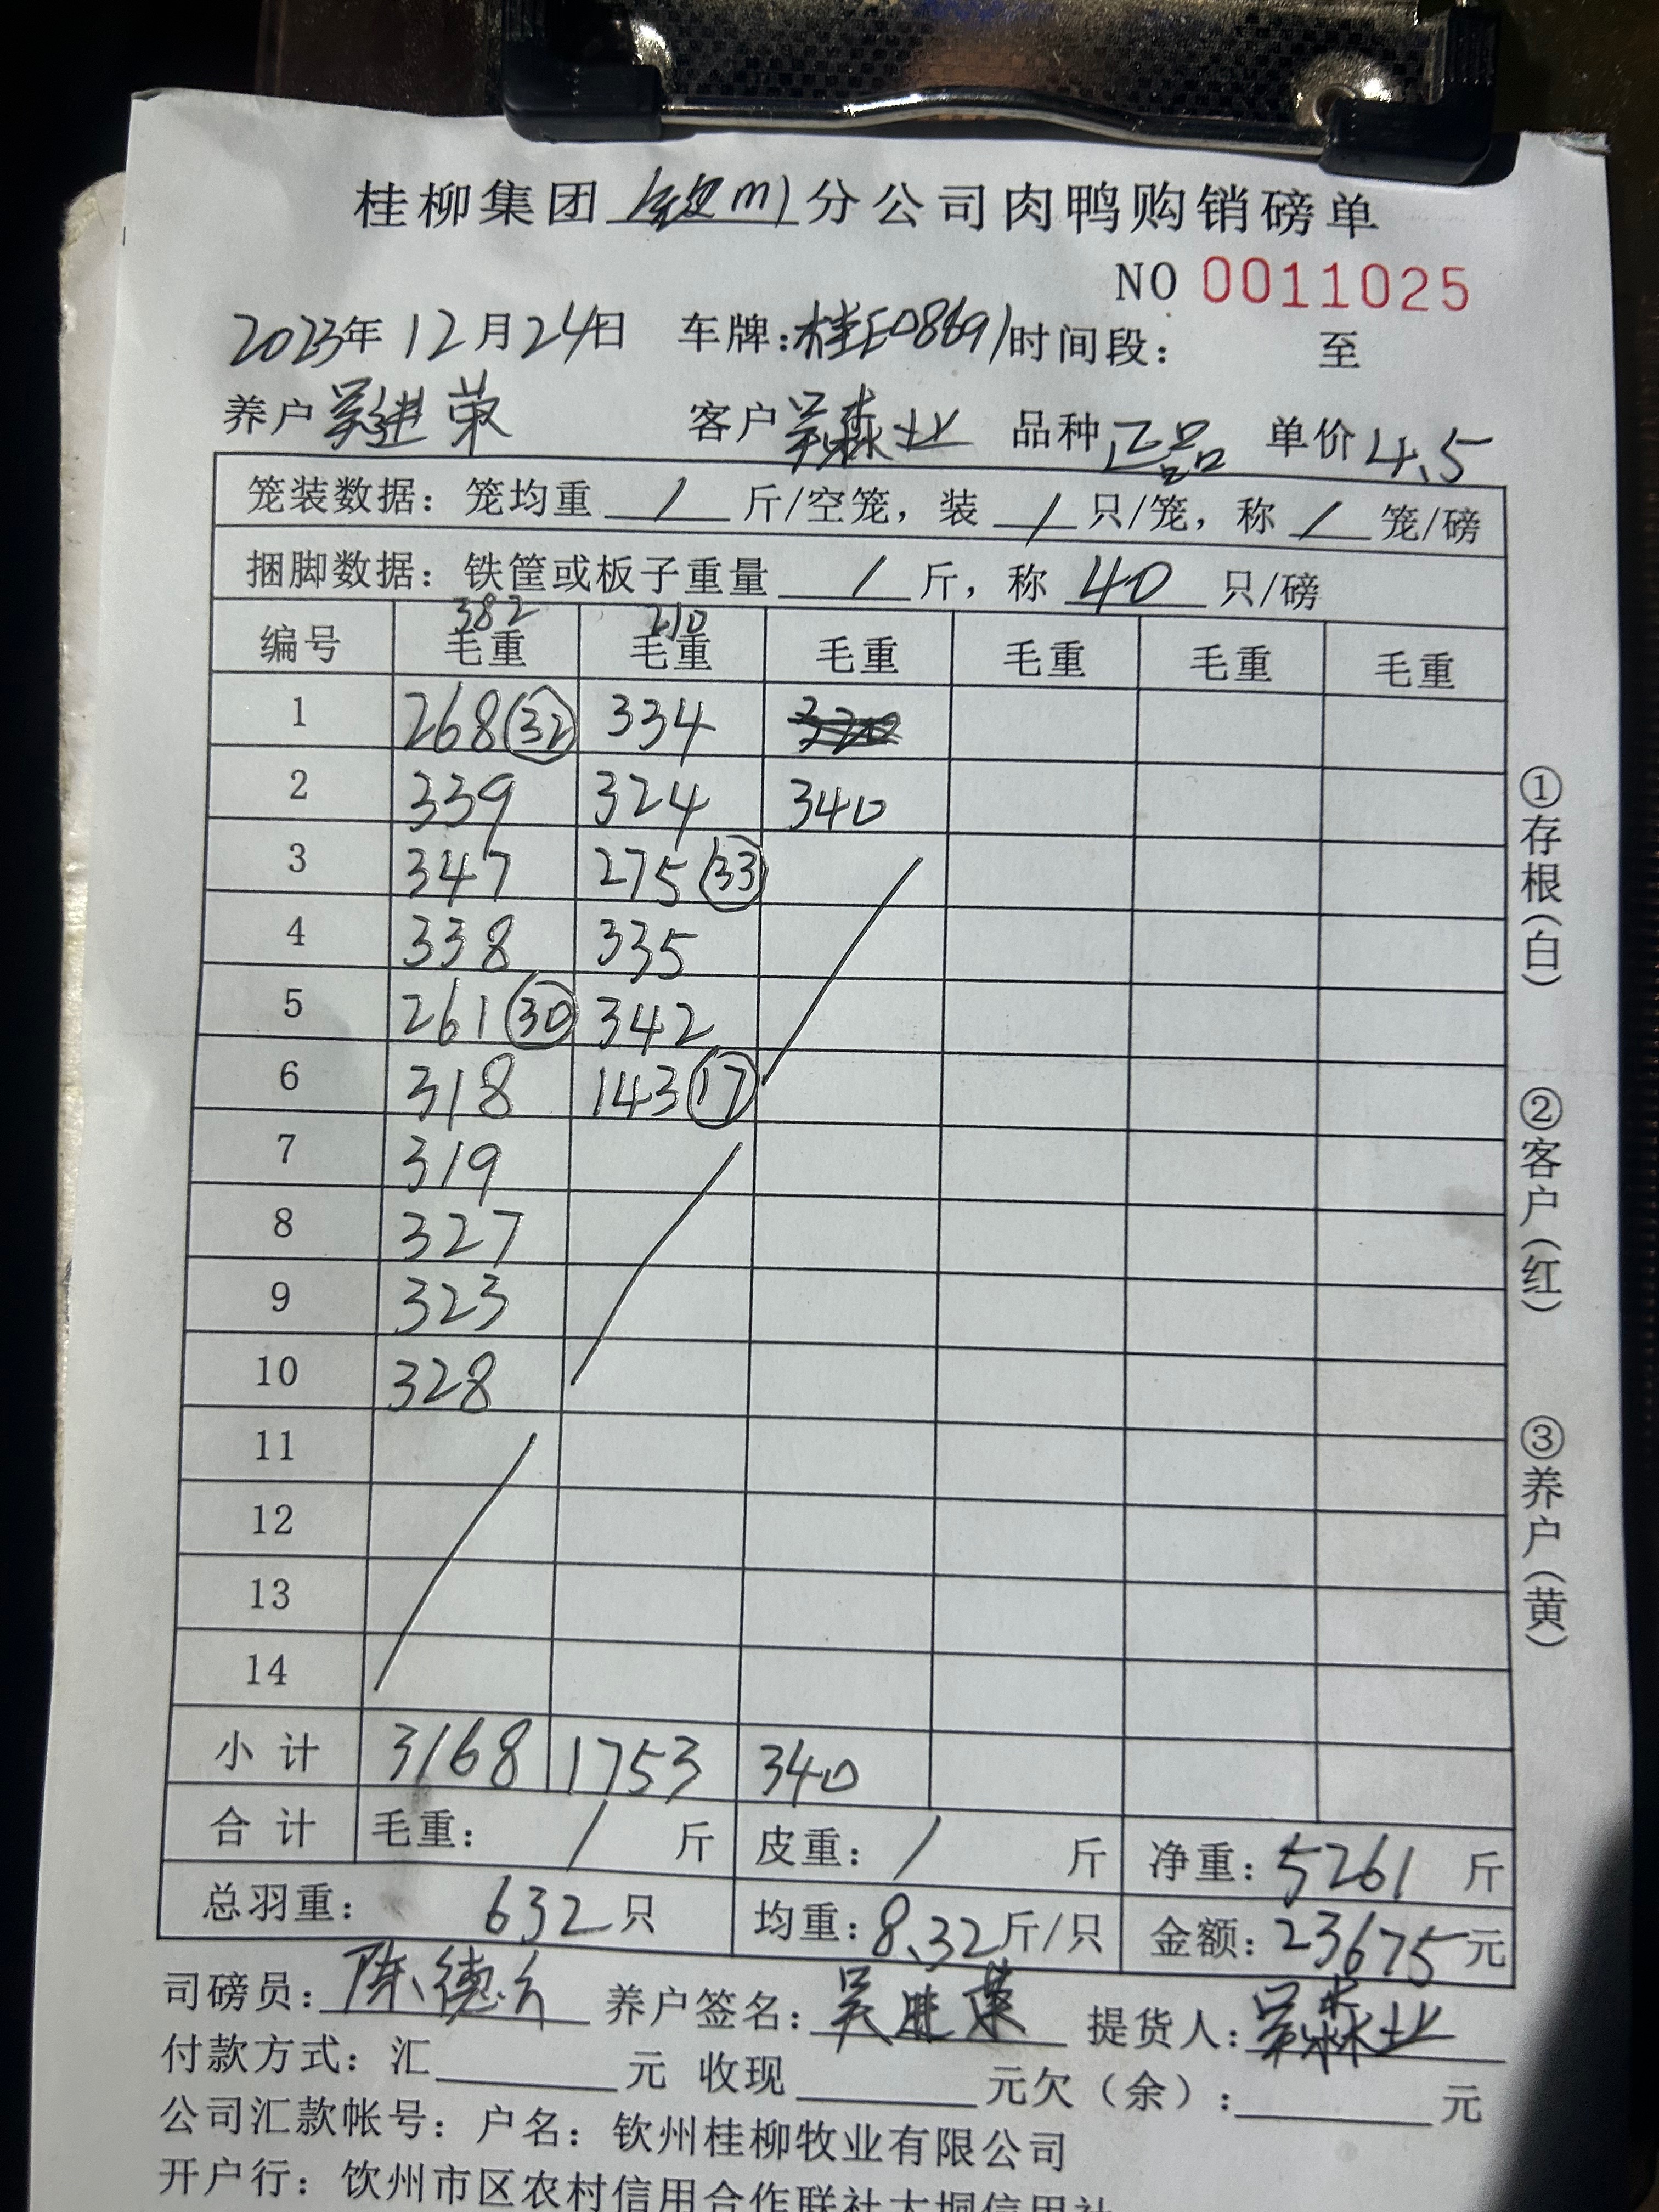 桂柳集团 钦州 分公司肉鸭购销磅单
NO 0011025
2023年 12月 24日 车牌: 桂E08691 时间段: 至
养户 吴进荣 客户 吴森业 品种 正品 单价 4.5
笼装数据: 笼均重 / 斤/空笼, 装 / 只/笼, 称 / 笼/磅
捆脚数据: 铁筐或板子重量 / 斤, 称 40 只/磅
382 210
编号 毛重 毛重 毛重 毛重 毛重 毛重
1 268 (32) 334
2 339 324 340
3 347 275 (33)
4 338 335
5 261 (30) 342
6 318 143 (17)
7 319
8 327
9 323
10 328
11
12
13
14
小计 3168 1753 340
合计 毛重: / 斤 皮重: / 斤 净重: 5261 斤
总羽重: 632 只 均重: 8.32 斤/只 金额: 23675 元
司磅员: 陈德 养户签名: 吴进荣 提货人: 吴森业
付款方式: 汇 元 收现 元欠(余): 元
公司汇款帐号: 户名: 钦州桂柳牧业有限公司
开户行: 钦州市区农村信用合作联社大垌信用社
①存根(白)
②客户(红)
③养户(黄)